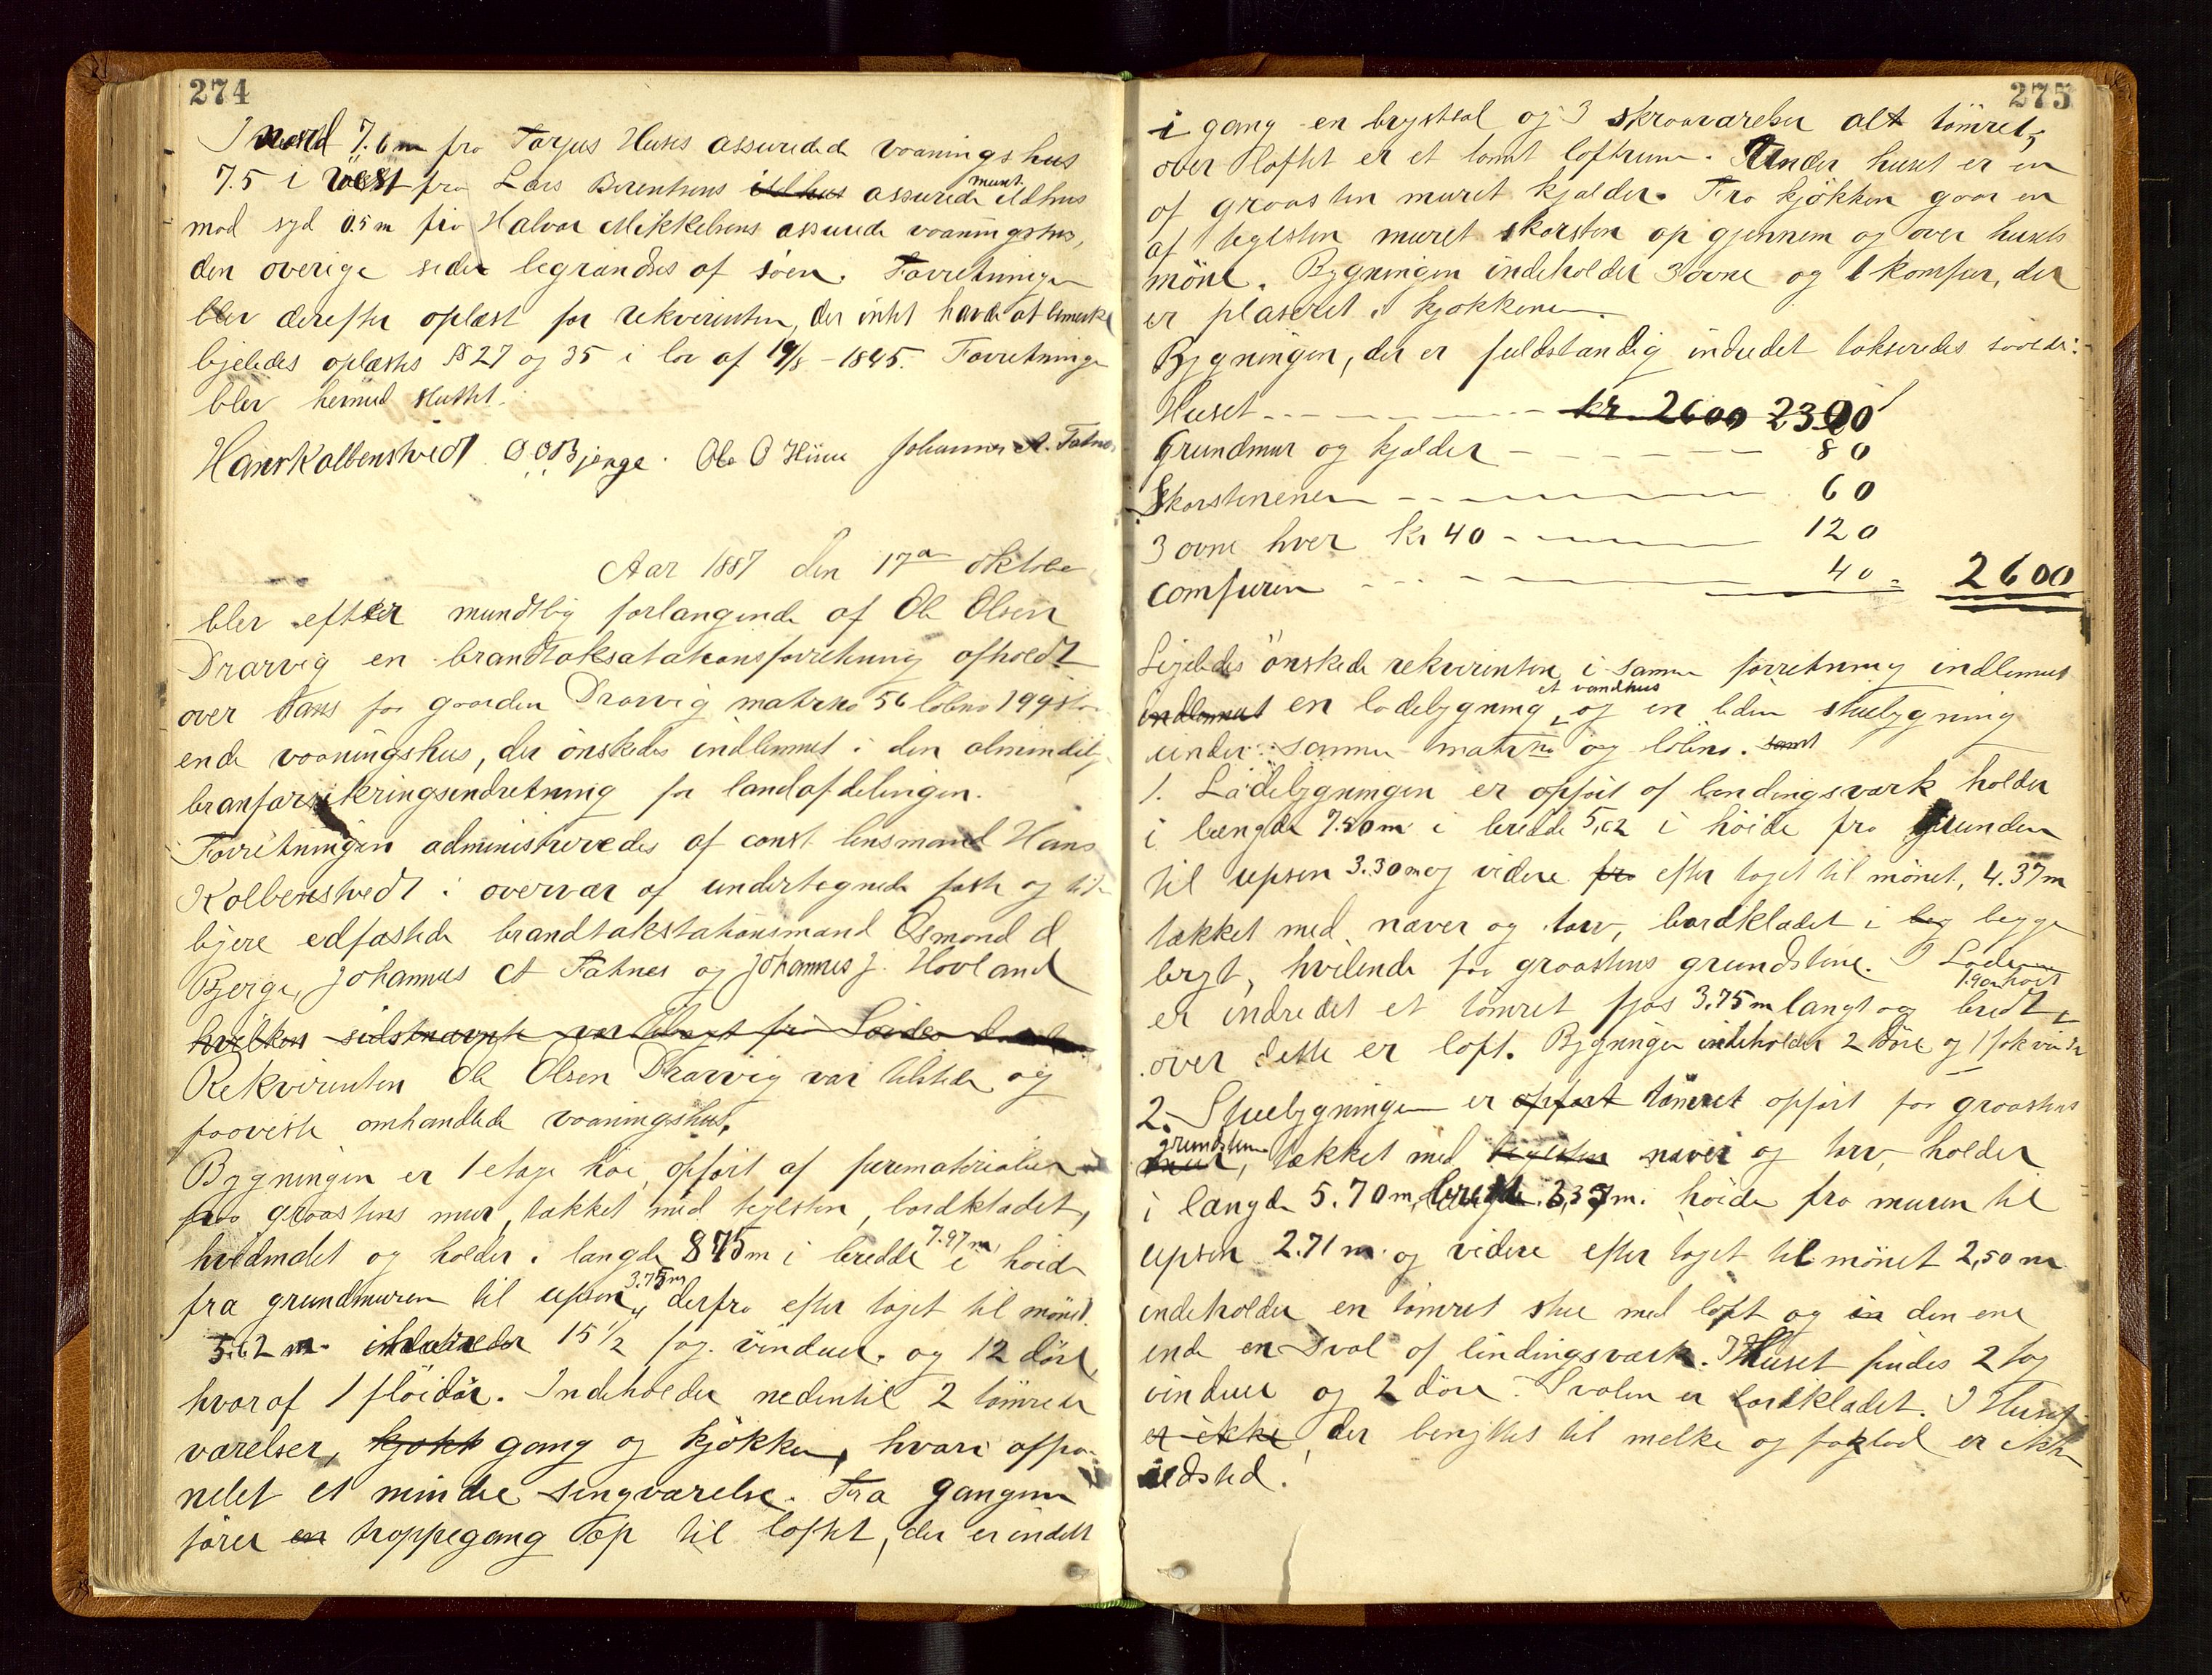 274
I nord 7.6 m fra Torjus Huses assurerede vaaningshus
7.5 i vest fra Lars Berentsens ildhus assurede muret ildhus
mod syd 0.5 m fra Halvor Mikkelsens assurede vaaningshus,
den overige side begrændses af söen. Forretningen
blev derefter oplæst for rekvirenten, der intet havde at bemerke
ligeledes oplæstes §§ 27 og 35 i lov af 19/8 - 1845. Forretningen
blev hermed sluttet.
Hans Kolbenstvedt O O Bjerge. Ole O Hiim Johannes A. Fatnes
Aar 1887 den 17de oktober
blev efter mundtlig forlangende af Ole Olsen
Drarvig en brandtaksatationsforretning afholdt
over hans paa gaarden Drarvig matrno 56 löbno 199 staa
ende vaaningshus, der önskedes indlemmet i den almindelige
branforsikringsindretning for landafdelingen.
Forretningen administreredes af const lensmand Hans
Kolbenstvedt i overvær af undertegnede faste og tid-
ligere edfæstede brandtakstationsmænd Osmond O
Bjerge, Johannes A Fatnes og Johannes J. Hovland
hvilken sidstnævnte var
Rekvirenten Ole Olsen Drarvig var tilstede og
paaviste omhandlede vaaningshus.
Bygningen er 1 etage höi, opfört af furematerialier
paa graastens mur, tækket med teglsten, bordklædet,
hvidmalet og holder i længde 875 m i bredde 7.97 m i höide
fra grundmuren til upsen 3.75 m, derfra efter taget til mönet
5.62 m. indeholder 15 1/2 fag vinduer og 12 döre,
hvoraf 1 flöidör. Indeholder nedentil 2 tömrede
værelser, kjökk gang og kjökken, hvori afpa-
nelet et mindre sengværelse. Fra gangen
förer en trappegang op til loftet, der er indelt
275
i gang en brystsal og 3 skraaværelser alt tömret,
over loftet er et tomt loftrum. Under huset er en
af graasten muret kjælder. Fra kjökken gaar en
af teglsten muret skorsten op gjennem og over husets
möne. Bygningen indeholder 3 ovne og 1 komfur, der
er plaseret i kjøkkenen.
Bygningen, der er fuldstændig indredet takseredes saaledes:
Huset - - - kr. 2600 2300
Grundmur og kjælder - - - 80
Skorstenen - - - 60
3 ovne hver kr 40 - - - 120
comfuren - - - 40 = 2600
Ligeledes önskede rekvirenten i samme forretning indlemmet
indlemmet en ladebygning, et vandhus og en liden stuebygning
under samme matrno og löbno. samt
1. Ladebygningen er opfört af bindingsværk holder
i længde 7.50 m i bredde 5,62 i höide fra grunden
til upsen 3.30 m og videre fra efter taget til mönet, 4.37 m
tækket med næver og torv, bordklædet i beg begge
bryt, hvilende paa graastens grundstene. I Laden
er indredet et tömret fjøs 3.75 m langt og bredt, 1.90 m höit
over dette er loft. Bygningen indeholder 2 döre og 1 fak vindu
2. Stuebygningen er opfört tömret opfört paa graastens
grundstene mur, tækket med teglsten næver og torv, holder
i længde 5.70 m, bredde 3,37 m. höide fra muren til
upsen 2.71 m og videre efter taget til mönet 2,50 m
indeholder en tömret stue med loft og in den ene
ende en Sval af bindingsværk. I Huset findes 2 fag
vinduer og 2 döre. Svalen er bordklædet. I Huset
er ikke, der benyttes til melke og fø er ikke
ildsted.